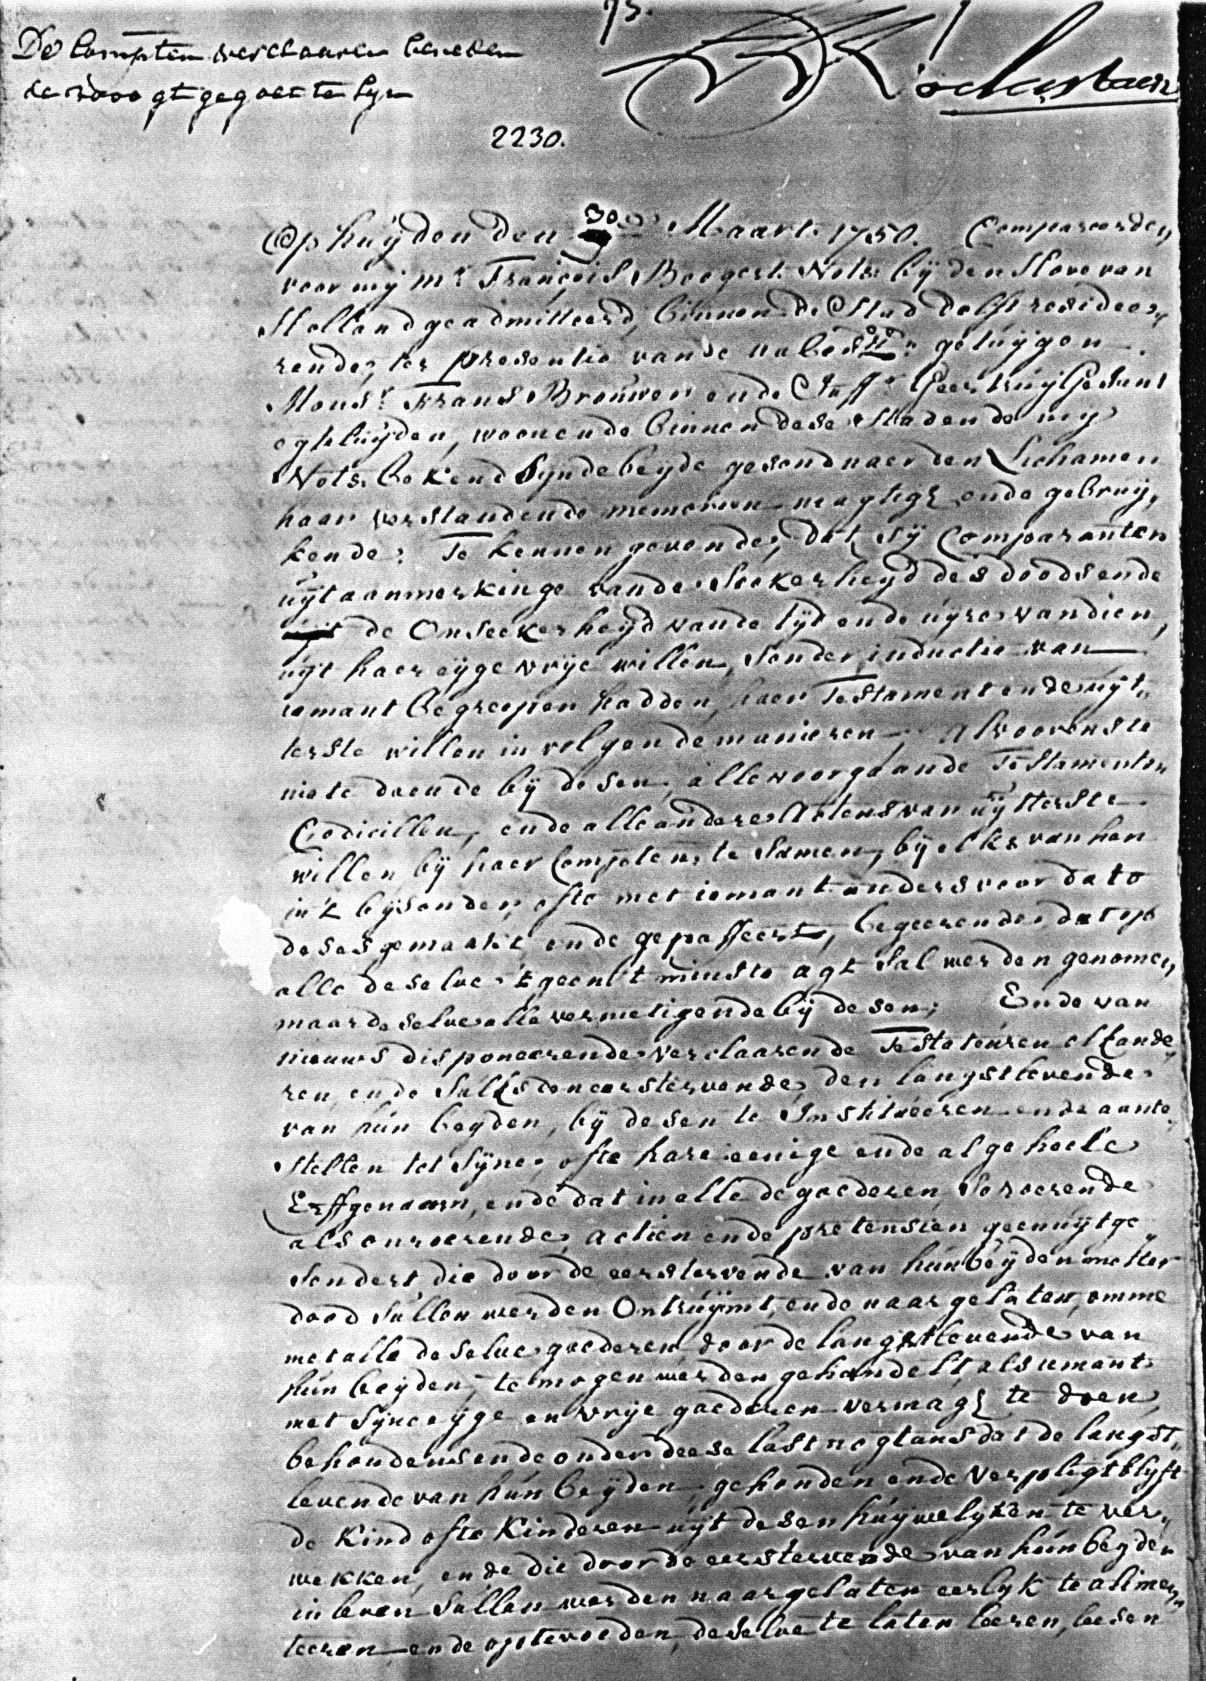 De Compten verclaaren beneden
de 2000 gt gegoet te syn
73.
2230.
Op huijden den 30e Maart 1750. Compareerden
voor mij Mr. François Boogert Nots. bij den Hove van
Holland geadmitteerd, binnen de Stad Delft resideer,
rende, ter presentie van de nabesz: getuijgen
Monsr. Frans Brouwer ende Juffr. Geertruij
egteluijden, woonende binnen dese stad ende mij
Nots. bekend, sijnde beijde gesond naer den Lichamen
haar verstand ende memorien magtigh ende gebruij,
kende; Te kennen gevende, dat sij Comparanten
uijt aanmerkinge van de seekerheijd des doods ende
de onseekerheijd van de tijt ende uijre van dien,
uijt haer eijge vrije willen, sonder inductie van
iemant begreepen hadden, haer Testament ende uijt,
terste willen in volgende manieren, Alvoorens te
niete doende bij desen, alle voorgaande Testamenten
Codicillen, ende alle andere Actens van uijtterste
willen bij haer Compten te samen, bij elks van hen
in't bijsonder, ofte met iemant anders voor dato
deses gemaakt ende gepasseert, begeerende dat op
alle deselve 't geen 't minste agt sal werden genomen,
maar deselve alle vernietigende bij desen; Ende van
nieuws disponeerende verclaarende Testateuren elkande,
ren, ende sulks den eerstervende, den langstlevende
van hún beijden, bij desen te Institúeeren ende aante
stellen tot sijne ofte hare eenige ende algeheele
Erffgenaem, ende dat in alle de goederen, so roerende
als onroerende, actien ende pretensien geen uijtge,
sondert die door de eerstervende van hún beijden metter
dood súllen werden ontruijmt, ende naargelaten, omme
met alle deselve goederen, door de langstlevende van
hún beijden, te mogen werden gehandelt, als iemant
met sijne eijge en vrije goederen vermagh te doen,
behoudens ende onder dese last nogtans dat de langst,
levende van hún beijden, gehouden ende verpligt blijft
de Kind ofte Kinderen uijt desen húijwelijken te ver,
wekken, ende die door de eerstervende van hún beijden
in leven súllen werden naargelaten eerlijk te alimen,
teeren, ende optevoeden, deselve te laten leeren, leesen